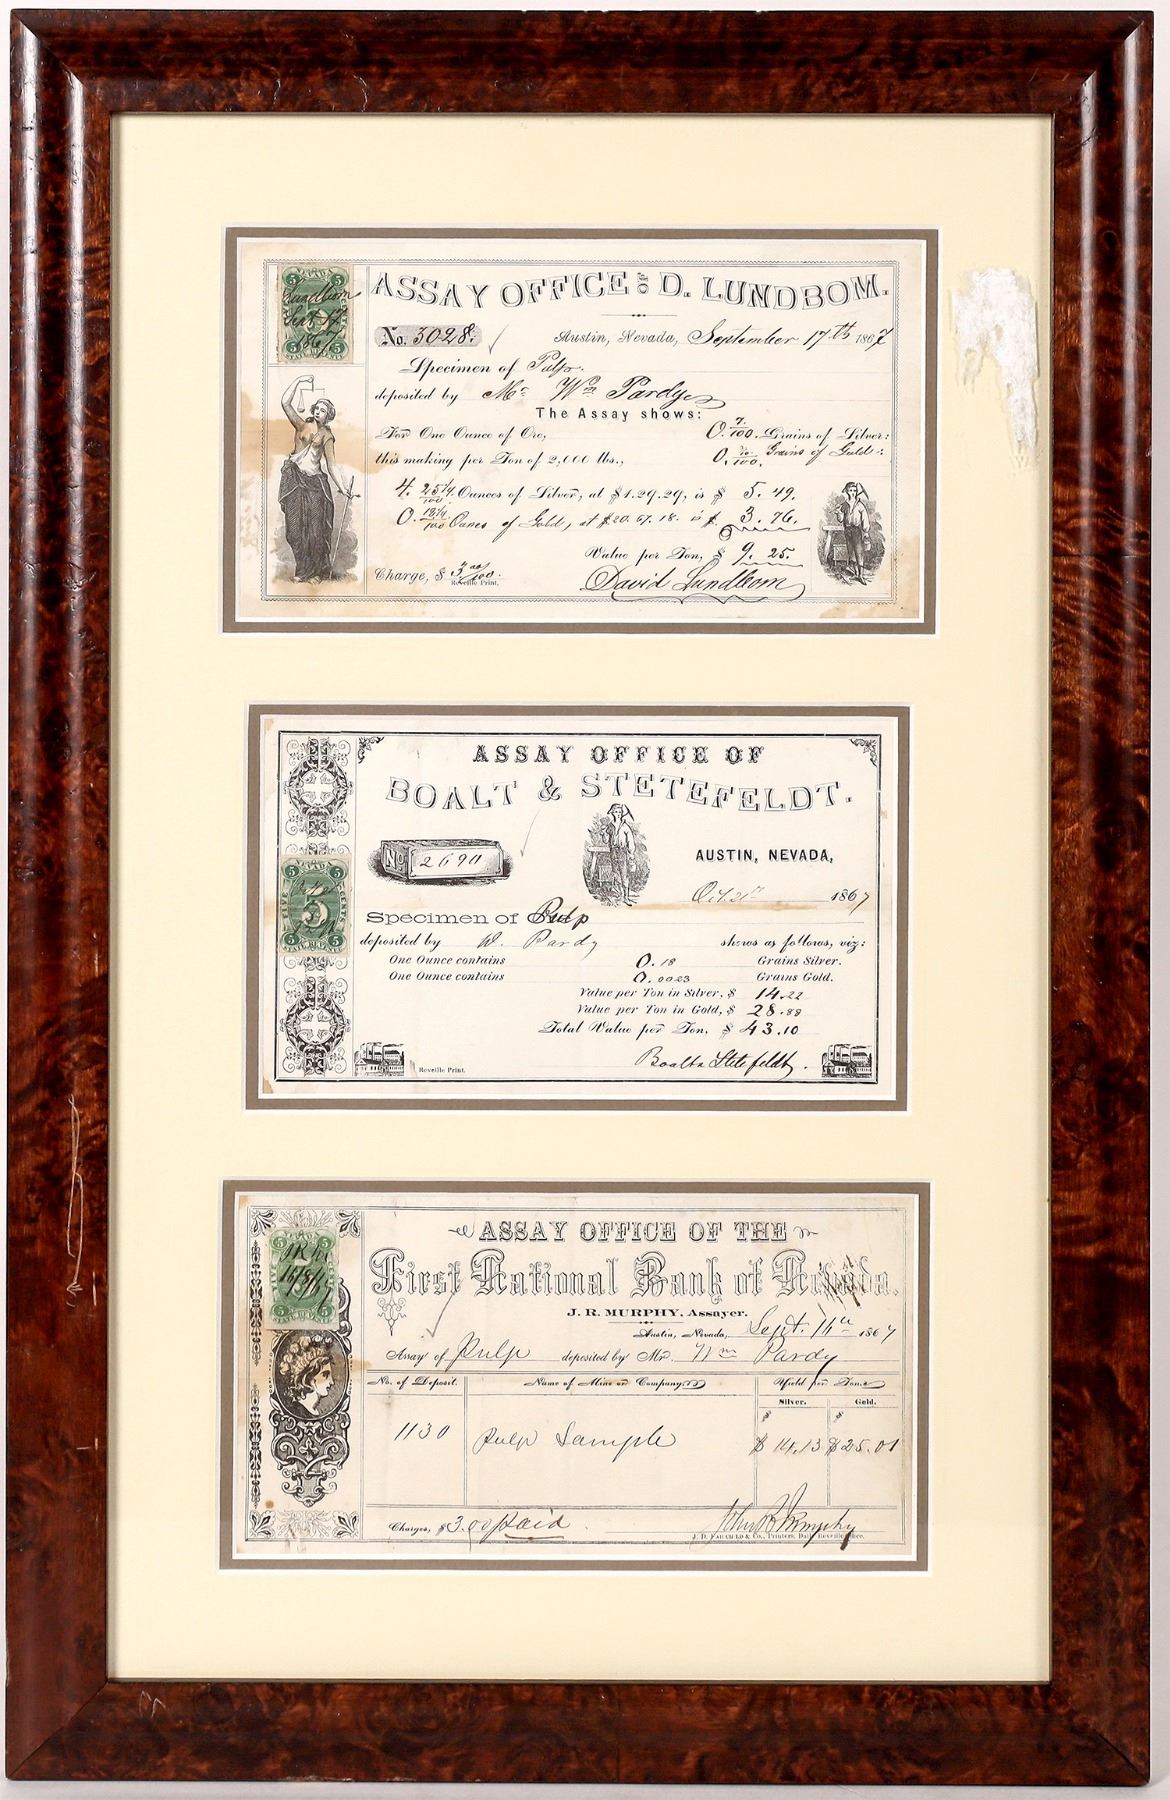 ASSAY OFFICE OF D. LUNDBOM.
NEVADA
5 5
Lundbom
Sept 17th
1867
5 5
STATE REVENUE
No. 3028.
Austin, Nevada, September 17th 1867
Specimen of Pulp.
deposited by Mr Wm Pardy
The Assay shows:
For One Ounce of Ore, 0. 7/100. Grains of Silver:
this making per Ton of 2,000 lbs., Grains of Gold:
Ounces of Silver, at $1.29.29, is $ 5.49.
Ounces of Gold, at $20.67.18. is $ 3.76.
Value per Ton, $ 9.25.
Charge, $ 3 00/100.
Reveille Print.
David Lundbom
ASSAY OFFICE OF
BOALT & STETEFELDT.
No 2690
AUSTIN, NEVADA,
Oct. 21st 1867
NEVADA
5 5
FIVE CENTS
5
5 5
STATE REVENUE
Specimen of Pulp
deposited by W. Pardy shows as follows, viz:
One Ounce contains 0.18 Grains Silver.
One Ounce contains 0.0023 Grains Gold.
Value per Ton in Silver, $ 14.22
Value per Ton in Gold, $ 28.88
Total Value per Ton, $ 43.10
Boalt & Stetefeldt.
Reveille Print.
ASSAY OFFICE OF THE
First National Bank of Nevada.
J. R. MURPHY, Assayer.
NEVADA
5 5
5 5
STATE REVENUE
Austin, Nevada, Sept. 14th 1867
Assay of Pulp deposited by Mr. Wm Pardy
No. of Deposit. Name of Mine or Company. Yield per Ton.
Silver. Gold.
1130 Pulp Sample $ 14.13 $ 25.01
Charges, $ 3.00 paid
John R Murphy
J. D. FAIRCHILD & Co., Printers, Daily Reveille Office.